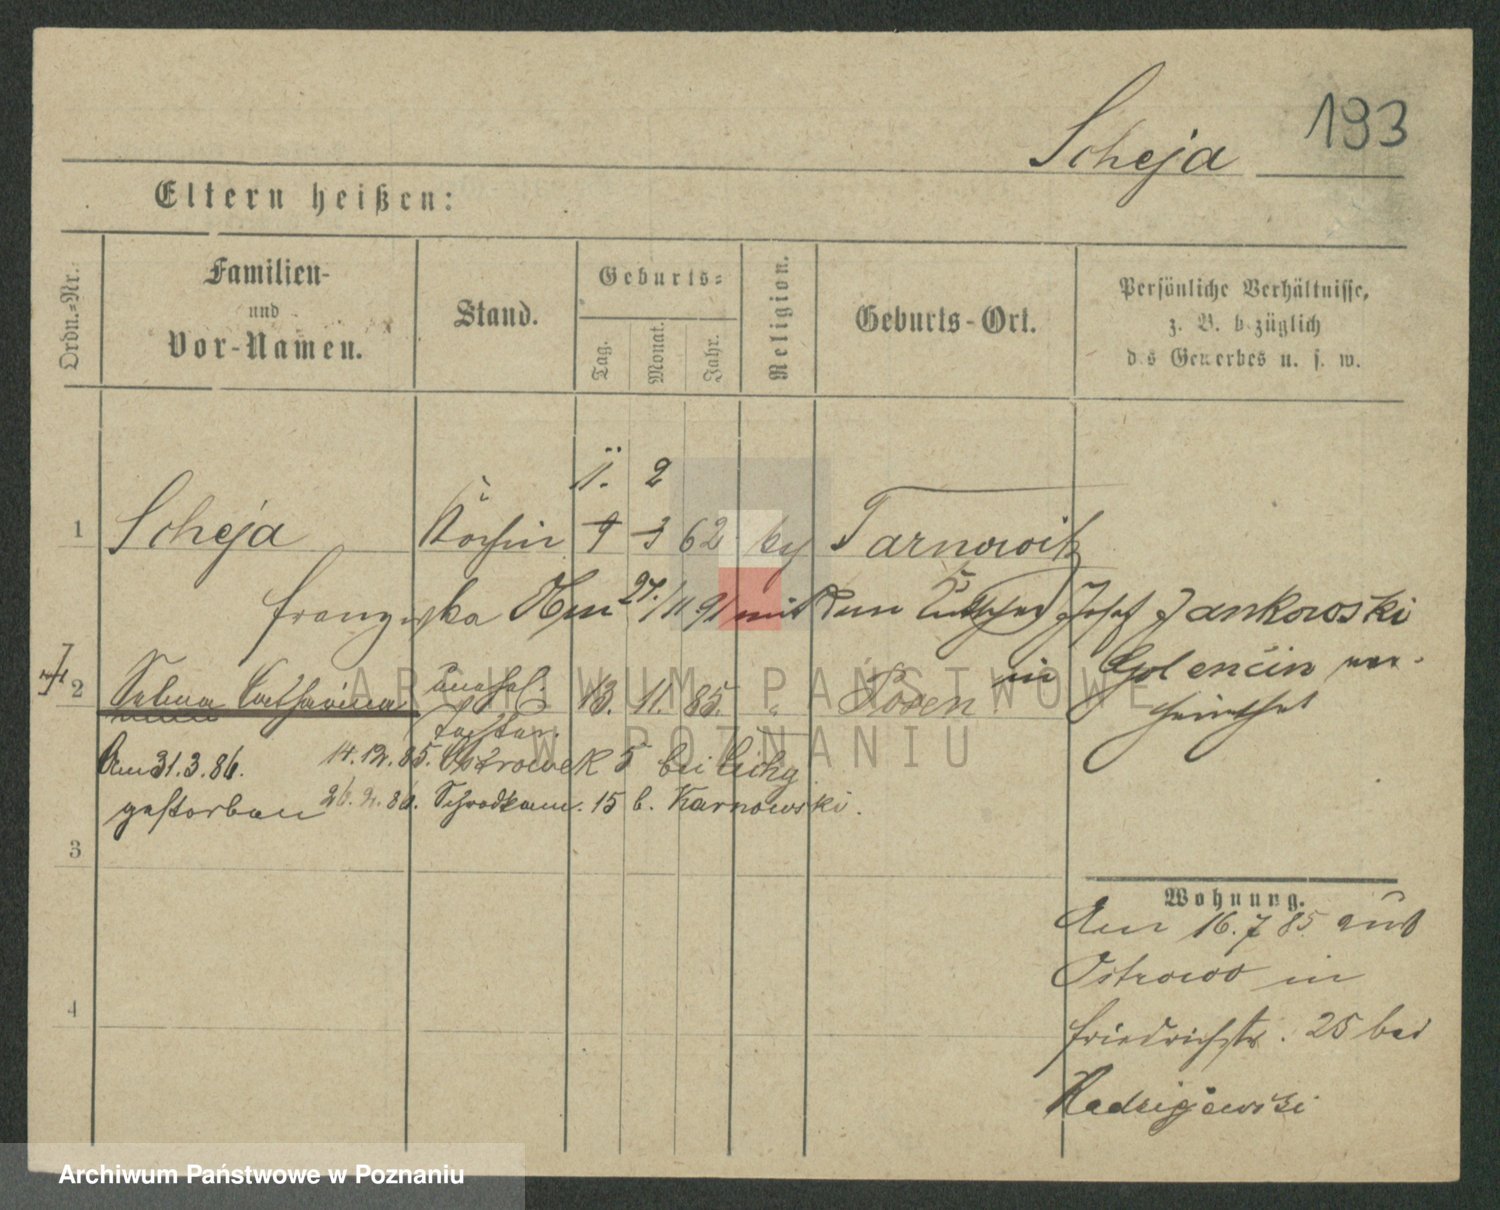 Scheja 193
Eltern heißen:
Ordn.-Nr.
Familien-
und
Vor-Namen.
Stand.
Geburts-
Tag.
Monat.
Jahr.
Religion.
Geburts-Ort.
Persönliche Verhältnisse,
z. B. bezüglich
des Gewerbes u. s. w.
11. 2
1 Scheja Köchin 9 3 62 Tarnowitz
Franziska 27/11 91 mit dem Kutscher Josef Jankowski
in Golencin ver-
heirathet
2 Catharina unehel. 13. 11. 85. " Posen
Tochter.
Am 31.3.86. 14.12.85. Ostrowek 5 bei Cichy
gestorben 26.2.86. Schrodkam. 15 b. Karnowski.
3
4
Wohnung.
Am 16.7 85. aus
Ostrowo in
Friedrichstr. 25 bei
Radziejewski
ARCHIWUM PAŃSTWOWE
W POZNANIU
Archiwum Państwowe w Poznaniu